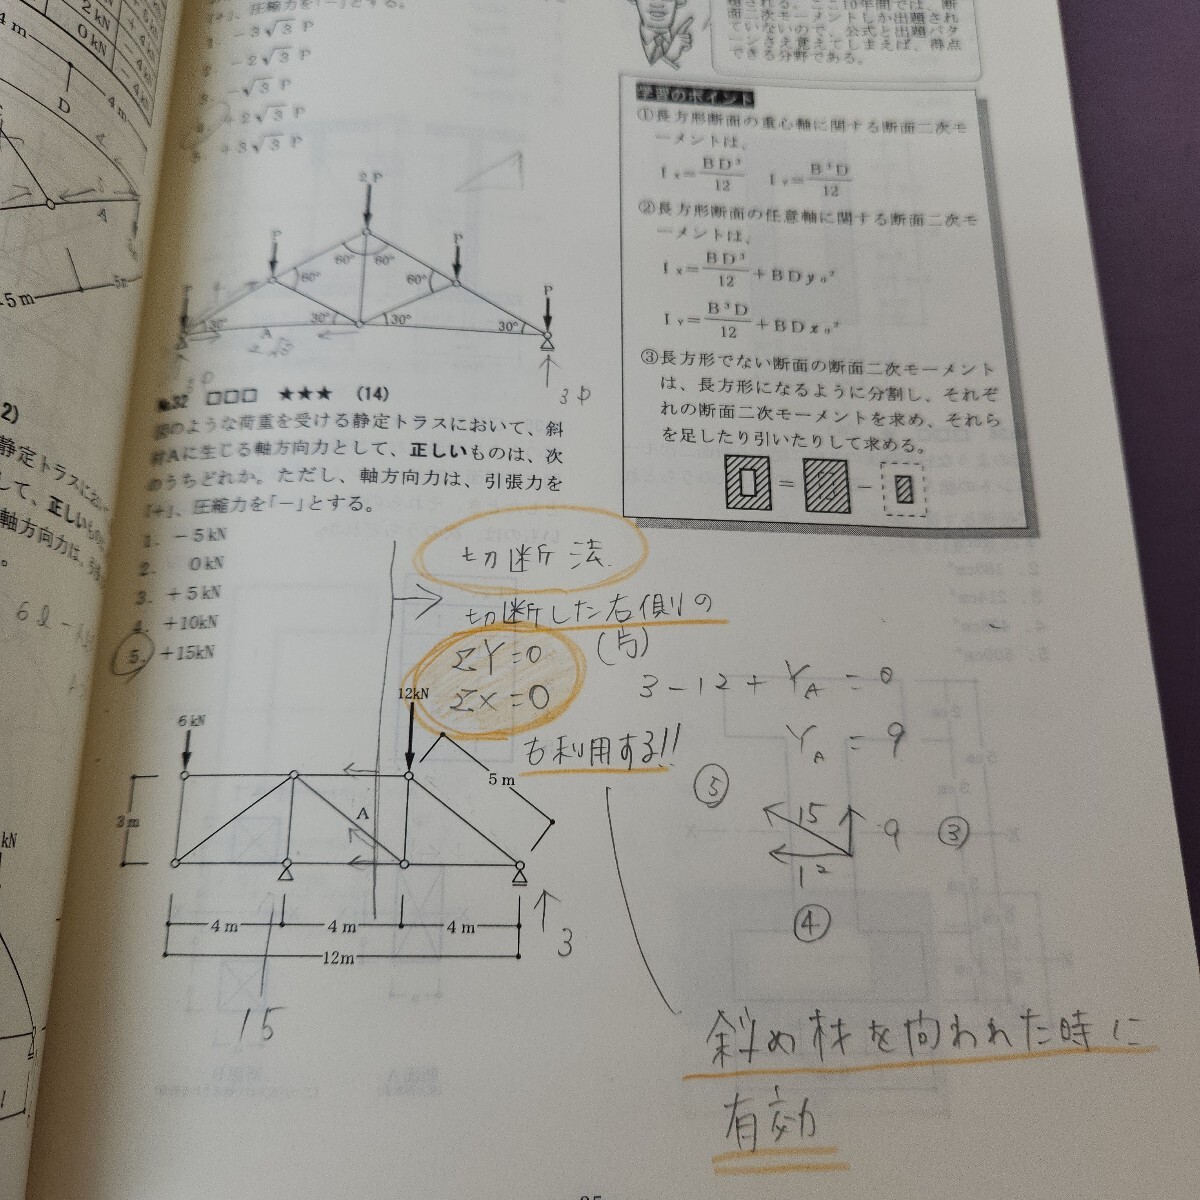 2kN
0kN
+4kN
-4kN
4m
D
4m
A
5m
5m
静定トラスにお
して、正しいもの
軸方向力は、
kN
「+」、圧縮力を「-」とする。
1. -3√3 P
2. -2√3 P
3. -√3 P
4. +2√3 P
5. +3√3 P
2P
P
P
P
P
60°
60°
60°
60°
30°
30°
30°
30°
A
2√3
3P
3P
№32 □□□ ★★★ (14)
図のような荷重を受ける静定トラスにおいて、斜
材Aに生じる軸方向力として、正しいものは、次
のうちどれか。ただし、軸方向力は、引張力を
「+」、圧縮力を「-」とする。
1. -5kN
2. 0kN
3. +5kN
4. +10kN
5. +15kN
6kN
12kN
5m
3m
A
4m
4m
4m
12m
3
15
面二次モーメントしか出題され
ていないので、公式と出題パタ
ーンさえ覚えてしまえば、得点
できる分野である。
学習のポイント
①長方形断面の重心軸に関する断面二次モ
ーメントは、
Ix=BD³/12 IY=B³D/12
②長方形断面の任意軸に関する断面二次モ
ーメントは、
Ix=BD³/12+BDy₀²
IY=B³D/12+BDx₀²
③長方形でない断面の断面二次モーメント
は、長方形になるように分割し、それぞ
れの断面二次モーメントを求め、それら
を足したり引いたりして求める。
= -
切断法
切断した右側の
(方)
ΣY=0
ΣX=0
も利用する!!
3-12+YA=0
YA=9
⑤
15
9
③
12
④
斜め材を問われた時に
有効